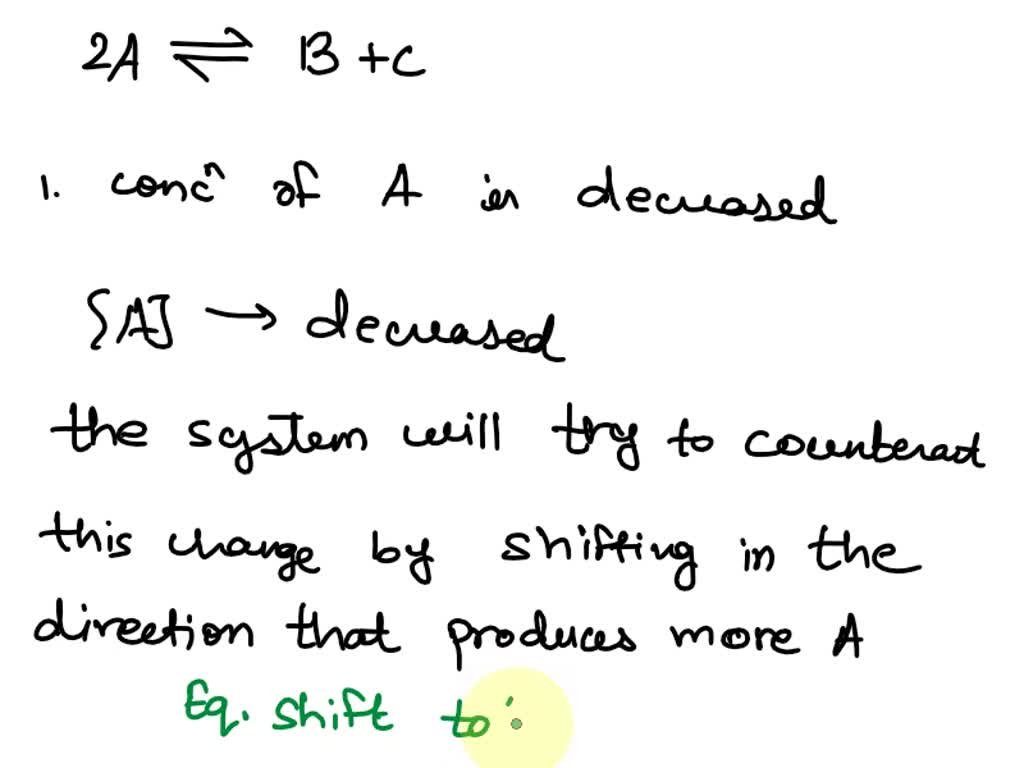 2A ⇌ B + C
1. concⁿ of A is decreased
[A] → decreased
the system will try to counteract
this change by shifting in the
direction that produces more A
Eq. shift to